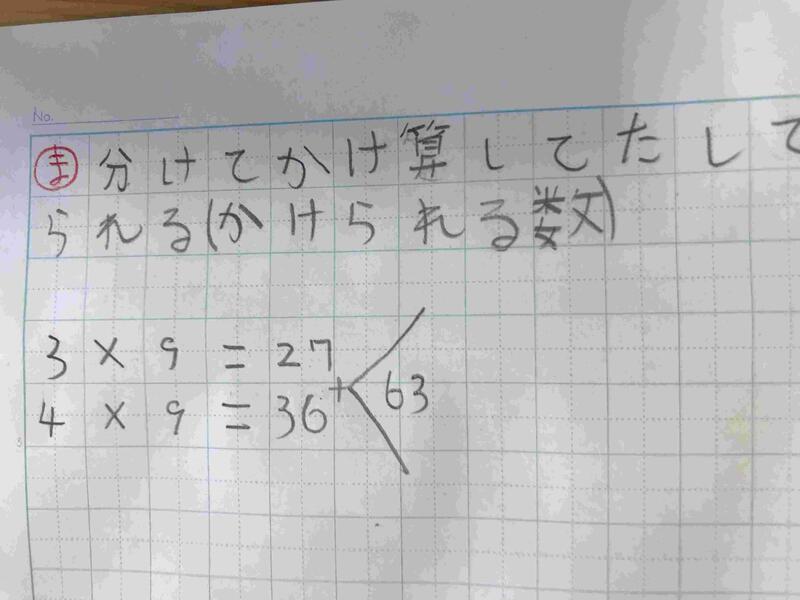 No.
ま 分けてかけ算してたして
られる(かけられる数)
3 × 9 = 27
4 × 9 = 36
+ 63